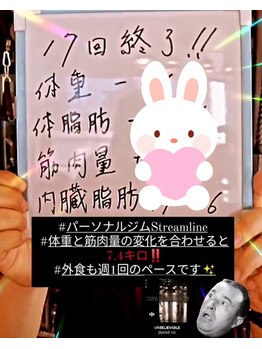 17回終了!!
体重 -
体脂肪 -
筋肉量 +
内臓脂肪 6
#パーソナルジムStreamline
#体重と筋肉量の変化を合わせると
7.4キロ‼️
#外食も週1回のペースです✨
UNBELIEVABLE